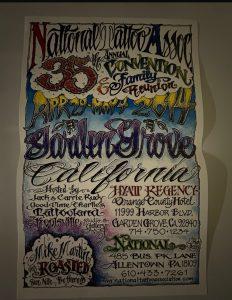 National Tattoo Assoc
35th Annual
Convention
& Family
Reunion
APR. 29 - MAY 4 2014
Garden Grove
California
Hosted By
Jack & Carrie Rudy
Good Time Charlie's
Tattooland
HYATT REGENCY
Orange County Hotel
11999 HARBOR BLVD.
GARDEN GROVE, CA 92840
714-750-1234
Mike Martin
ROASTED
NATIONAL
485 BUS. PK. LANE
ALLENTOWN PA. 18109
610-433-7261
www.nationaltattooassociation.com